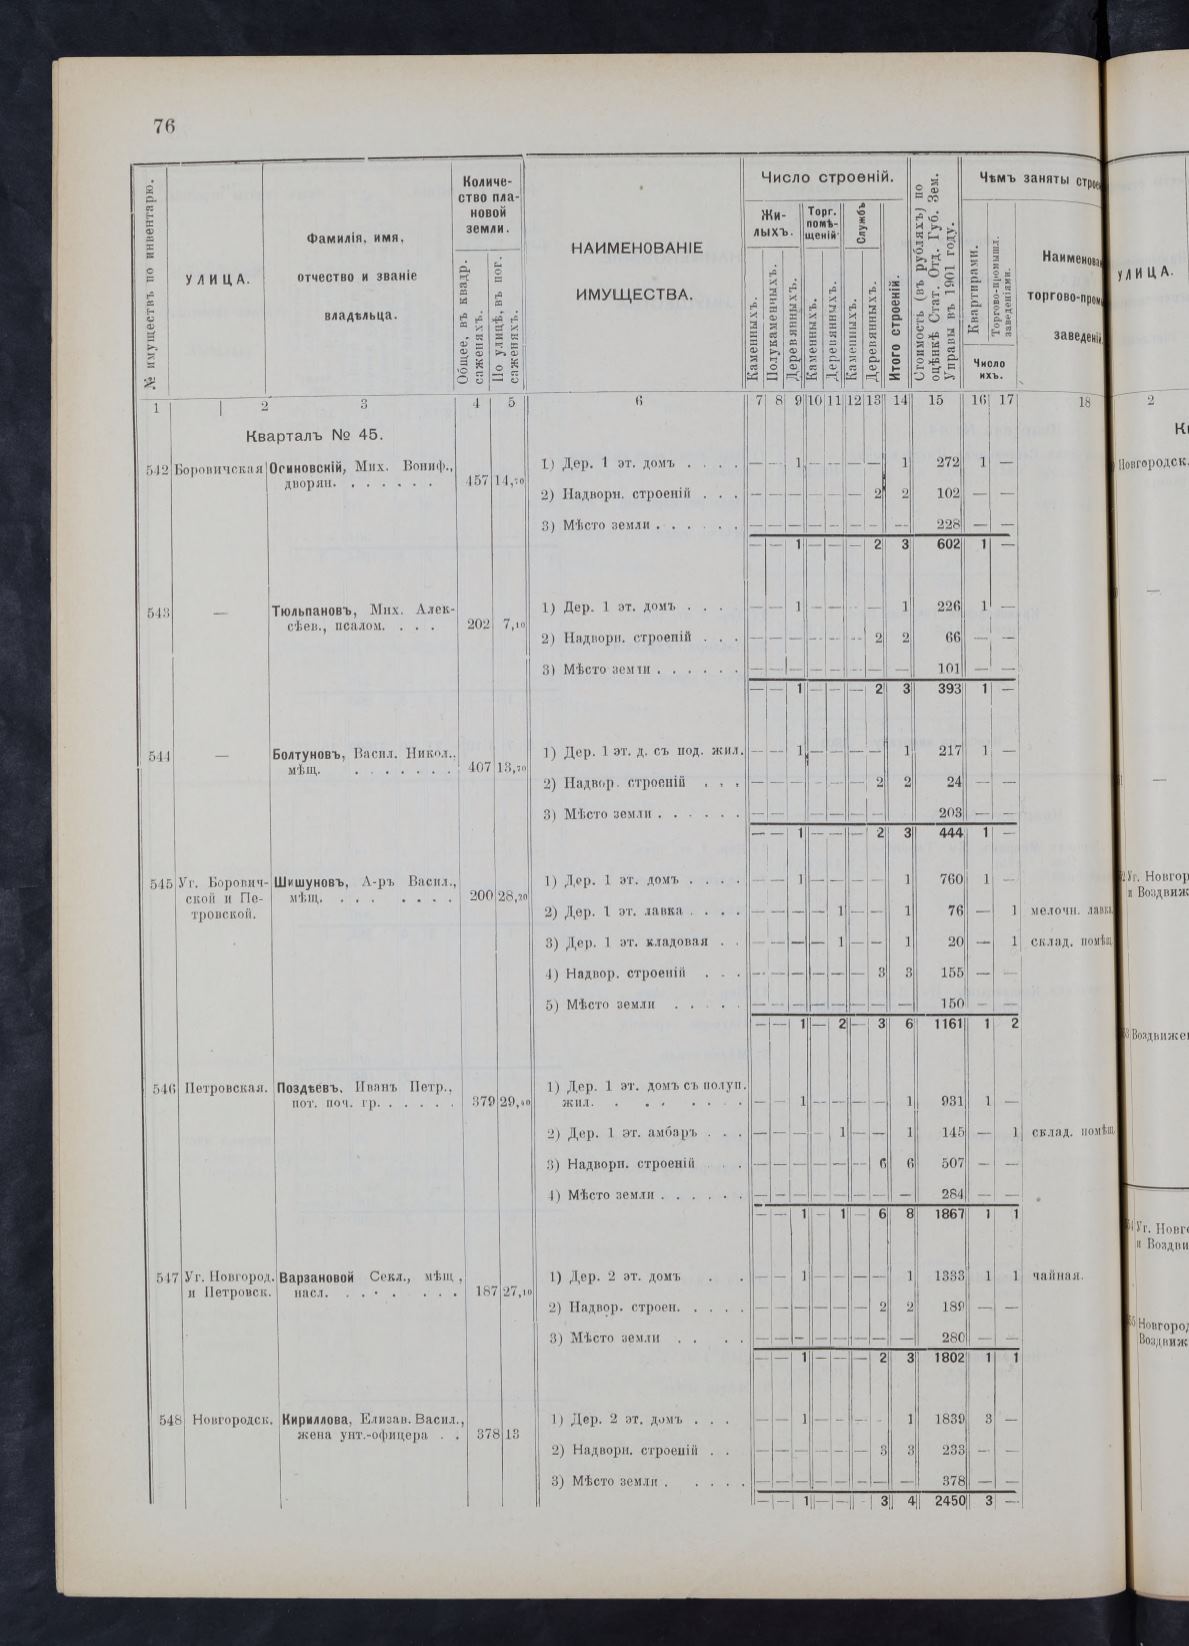 76
№ имуществъ по инвентарю.
УЛИЦА.
Фамилія, имя,
отчество и званіе
владѣльца.
Количе-
ство пла-
новой
земли.
Общее, въ квадр.
саженяхъ.
По улицѣ, въ пог.
саженяхъ.
НАИМЕНОВАНІЕ
ИМУЩЕСТВА.
Число строеній.
Жи-
лыхъ.
Торг.
помѣ-
щеній
Службъ
Каменныхъ.
Полукаменныхъ.
Деревянныхъ.
Каменныхъ.
Деревянныхъ.
Каменныхъ.
Деревянныхъ.
Итого строеній.
Стоимость (въ рубляхъ) по
оцѣнкѣ Стат. Отд. Губ. Зем.
Управы въ 1901 году.
Чѣмъ заняты строе
Квартирами.
Торгово-промышл.
заведеніями.
Число
ихъ.
Наименован
торгово-пром
заведеній
1 2 3 4 5 6 7 8 9 10 11 12 13 14 15 16 17 18
Кварталъ № 45.
542 Боровичская Осиновскій, Мих. Вониф.,
дворян. . . . . . . 457 14,70
1) Дер. 1 эт. домъ . . . . — — 1 — — — — 1 272 1 —
2) Надворн. строеній . . . — — — — — — 2 2 102 — —
3) Мѣсто земли . . . . . . — — — — — — — — 228 — —
— — 1 — — — 2 3 602 1 —
543 — Тюльпановъ, Мих. Алек-
сѣев., псалом. . . . 202 7,10
1) Дер. 1 эт. домъ . . . — — 1 — — — — 1 226 1 —
2) Надворн. строеній . . . — — — — — — 2 2 66 — —
3) Мѣсто земли . . . . . . — — — — — — — — 101 — —
— — 1 — — — 2 3 393 1 —
544 — Болтуновъ, Васил. Никол.,
мѣщ. . . . . . . . 407 13,70
1) Дер. 1 эт. д. съ под. жил. — — 1 — — — — 1 217 1 —
2) Надвор. строеній . . . — — — — — — 2 2 24 — —
3) Мѣсто земли . . . . . . — — — — — — — — 203 — —
— — 1 — — — 2 3 444 1 —
545 Уг. Борович- Шишуновъ, А-ръ Васил.,
ской и Пе- мѣщ. . . . . . . . 200 28,20
тровской.
1) Дер. 1 эт. домъ . . . . — — 1 — — — — 1 760 1 —
2) Дер. 1 эт. лавка . . . . — — — — 1 — — 1 76 — 1 мелочн. лавка.
3) Дер. 1 эт. кладовая . . — — — — 1 — — 1 20 — 1 склад. помѣщ.
4) Надвор. строеній . . . — — — — — — 3 3 155 — —
5) Мѣсто земли . . . . . — — — — — — — — 150 — —
— — 1 — 2 — 3 6 1161 1 2
546 Петровская. Поздѣевъ, Иванъ Петр.,
пот. поч. гр. . . . . . 379 29,40
1) Дер. 1 эт. домъ съ полуп.
жил. . . . . . . . — — 1 — — — — 1 931 1 —
2) Дер. 1 эт. амбаръ . . . — — — — 1 — — 1 145 — 1 склад. помѣщ.
3) Надворн. строеній . . . — — — — — — 6 6 507 — —
4) Мѣсто земли . . . . . . — — — — — — — — 284 — —
— — 1 — 1 — 6 8 1867 1 1
547 Уг. Новгород. Варзановой Секл., мѣщ.,
и Петровск. насл. . . . . . . . 187 27,10
1) Дер. 2 эт. домъ . . — — 1 — — — — 1 1333 1 1 чайная.
2) Надвор. строен. . . . . — — — — — — 2 2 189 — —
3) Мѣсто земли . . . . — — — — — — — — 280 — —
— — 1 — — — 2 3 1802 1 1
548 Новгородск. Кириллова, Елизав. Васил.,
жена унт.-офицера . . 378 13
1) Дер. 2 эт. домъ . . . — — 1 — — — — 1 1839 3 —
2) Надворн. строеній . . — — — — — — 3 3 233 — —
3) Мѣсто земли . . . . . — — — — — — — — 378 — —
— — 1 — — — 3 4 2450 3 —
УЛИЦА.
2
Новгородск.
—
—
Уг. Новгор
и Воздвиж
Воздвиже
Уг. Новг
и Воздви
Новгоро
Воздвиж